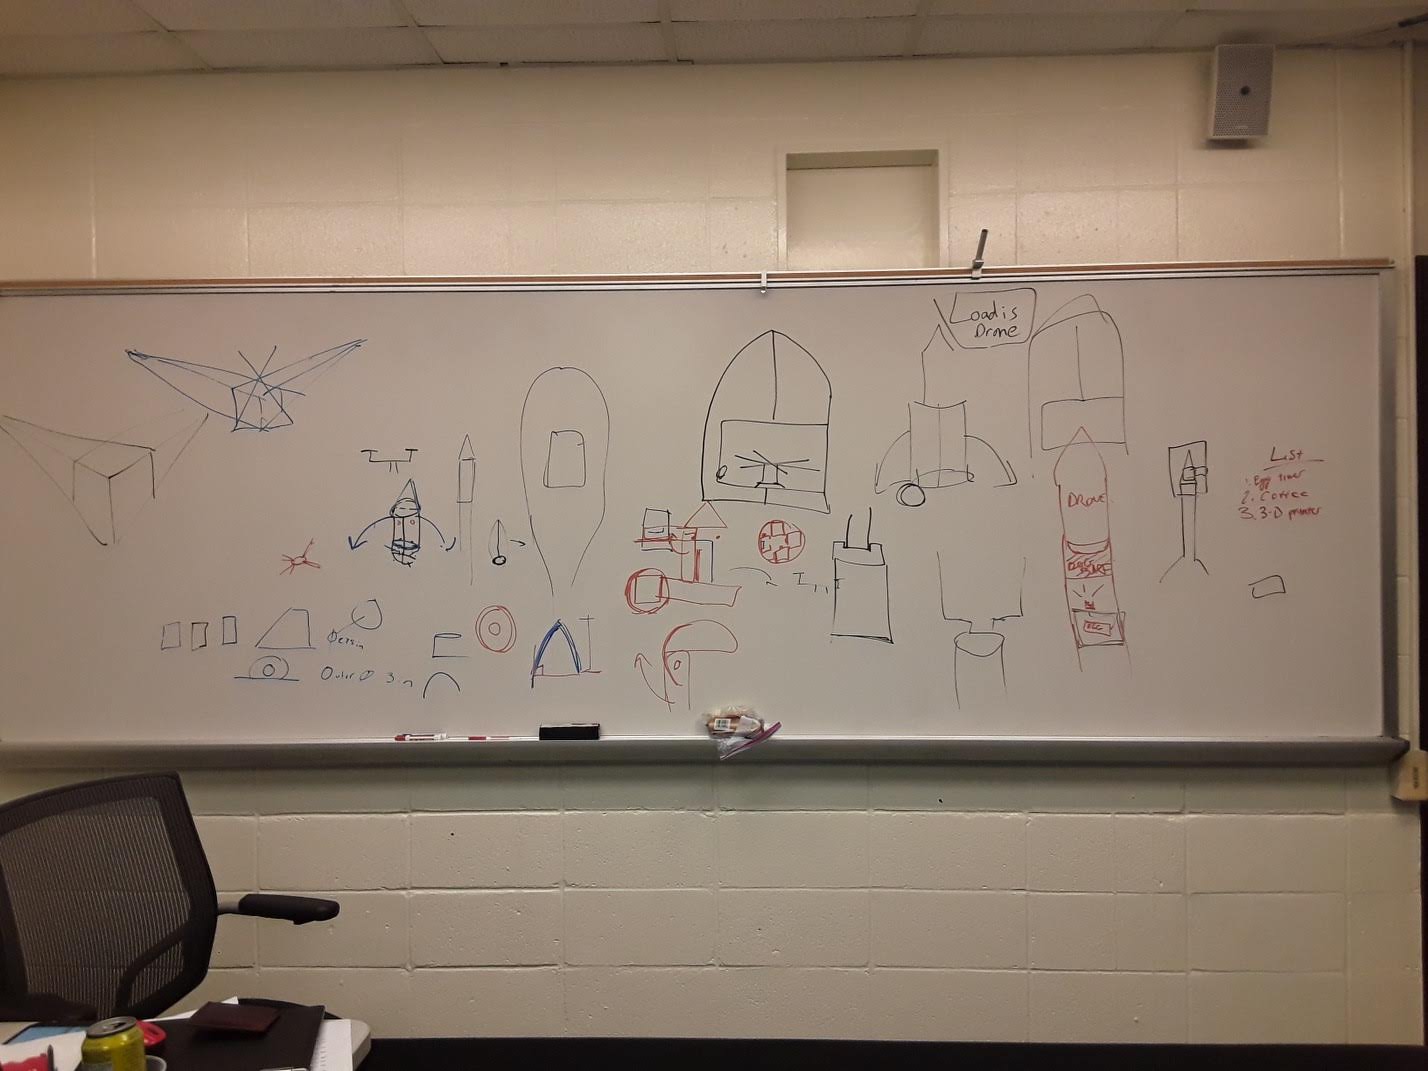 Load is
Drone
List
1. Egg timer
2. Coffee
3. 3-D printer
DRONE
Outer Ø 3 in